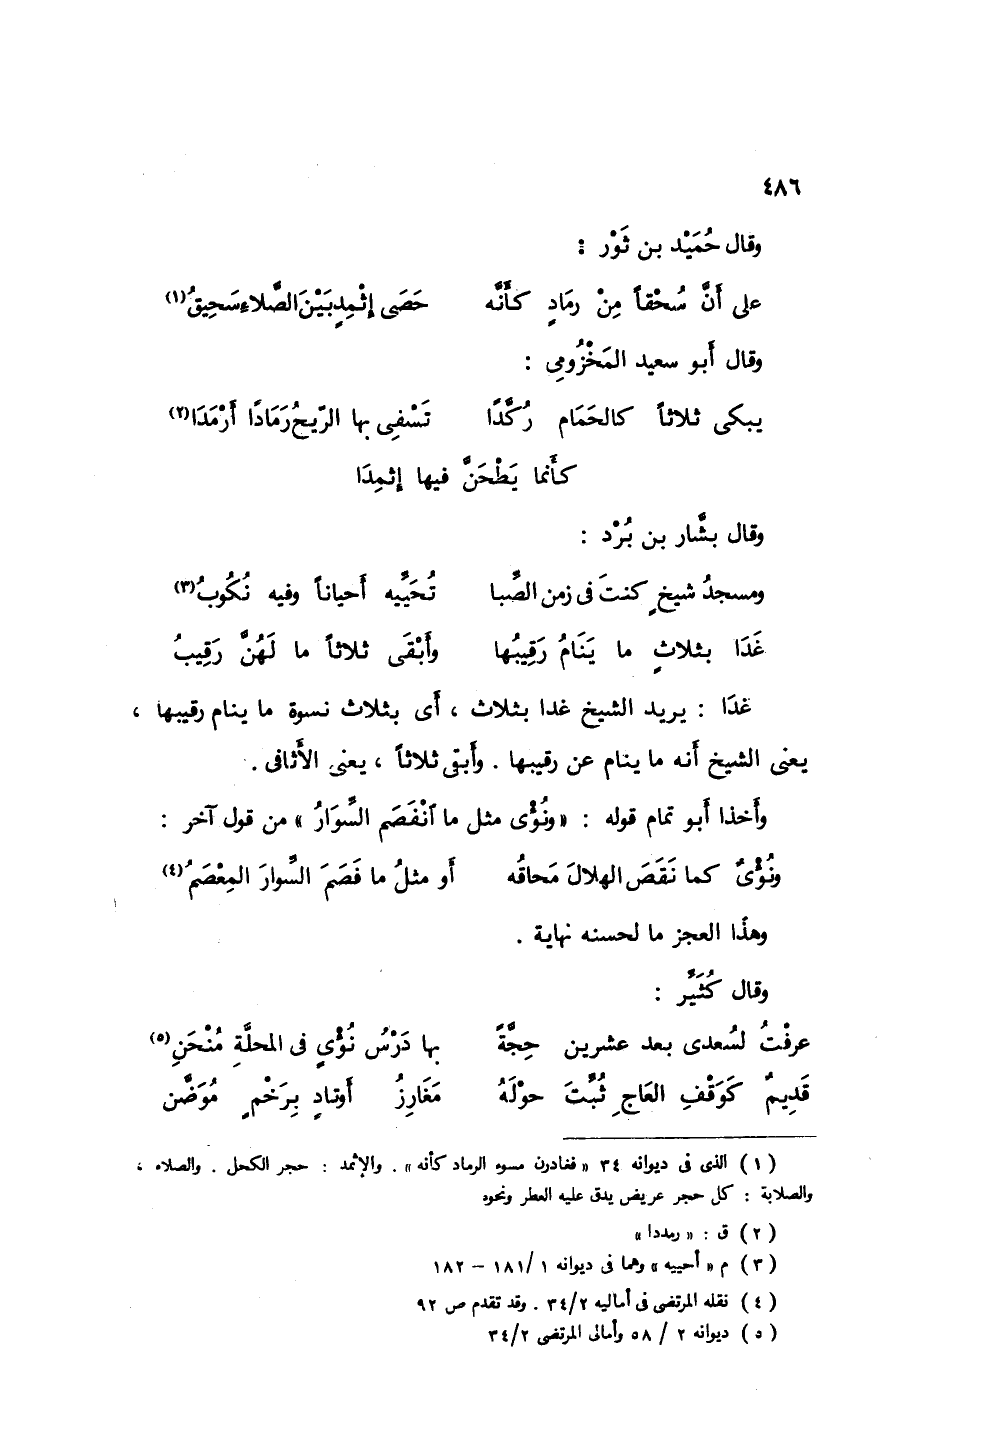 ٤٨٦
وقال حُمَيْد بن ثَوْر :
على أَنَّ سُحْقاً مِنْ رمَادٍ كأَنَّه حَصَى إثْمِدٍ بَيْنَ الصَّلاءِ سَحِيقُ(١)
وقال أَبو سعيد المَخْزُومى :
يبكى ثلاثاً كالحَمَام رُكَّدًا تَسْفِى بها الرّيحُ رَمَادًا أَرْمَدَا(٢)
كأَنما يَطْحَنَّ فيها إثمِدَا
وقال بشَّار بن بُرْد :
ومسجدُ شيخٍ كنتَ فى زمن الصِّبا تُحَيِّيه أَحياناً وفيه نُكُوبُ(٣)
غَدَا بثلاثٍ ما يَنَامُ رَقِيبُها وأَبْقَى ثلاثاً ما لَهُنَّ رَقِيبُ
غدَا : يريد الشيخ غدا بثلاث ، أَى بثلاث نسوة ما ينام رقيبها ،
يعنى الشيخ أَنه ما ينام عن رقيبها . وأَبقى ثلاثاً ، يعنى الأَثافى .
وأَخذا أَبو تمام قوله : « ونُؤْى مثل ما ٱنْفَصَم السِّوَارُ » من قول آخر :
ونُؤْىٌ كما نَقَصَ الهلالَ مَحاقُه أَو مثلُ ما فَصَمَ السِّوارَ المِعْصَمُ(٤)
وهذَا العجز ما لحسنه نهاية .
وقال كُثَيِّر :
عرفْتُ لسُعدى بعد عشرين حِجَّةً بها دَرْسُ نُؤْىٍ فى المحلَّةِ مُنْحَنِ(٥)
قَدِيمٌ كَوَقْفِ العَاجِ ثُبِّتَ حوْلَهُ مَغَارِزُ أَوتادٍ بِرَخْمٍ مُوَضَّن
(١) الذى فى ديوانه ٣٤ « فغادرن مسود الرماد كأنه » . والإثمد : حجر الكحل . والصلاء ،
والصلابة : كل حجر عريض يدق عليه العطر ونحوه
(٢) ق : « رمددا »
(٣) م « أحييه » وهما فى ديوانه ١ /١٨١ – ١٨٢
(٤) نقله المرتضى فى أماليه ٣٤/٢ . وقد تقدم ص ٩٢
(٥) ديوانه ٢ / ٥٨ وأمالى المرتضى ٣٤/٢